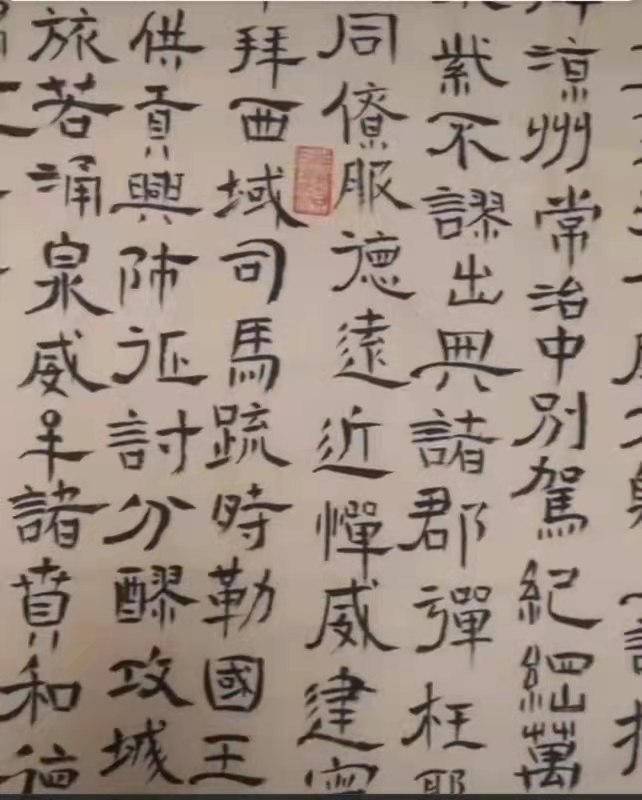 涼州常治中別駕紀綱萬
紫不謬出典諸郡彈枉耶
同僚服德遠近憚威建寧
拜西域司馬疏時勒國王
供貢興師征討分醪攻城
旅若涌泉威牟諸賁和德